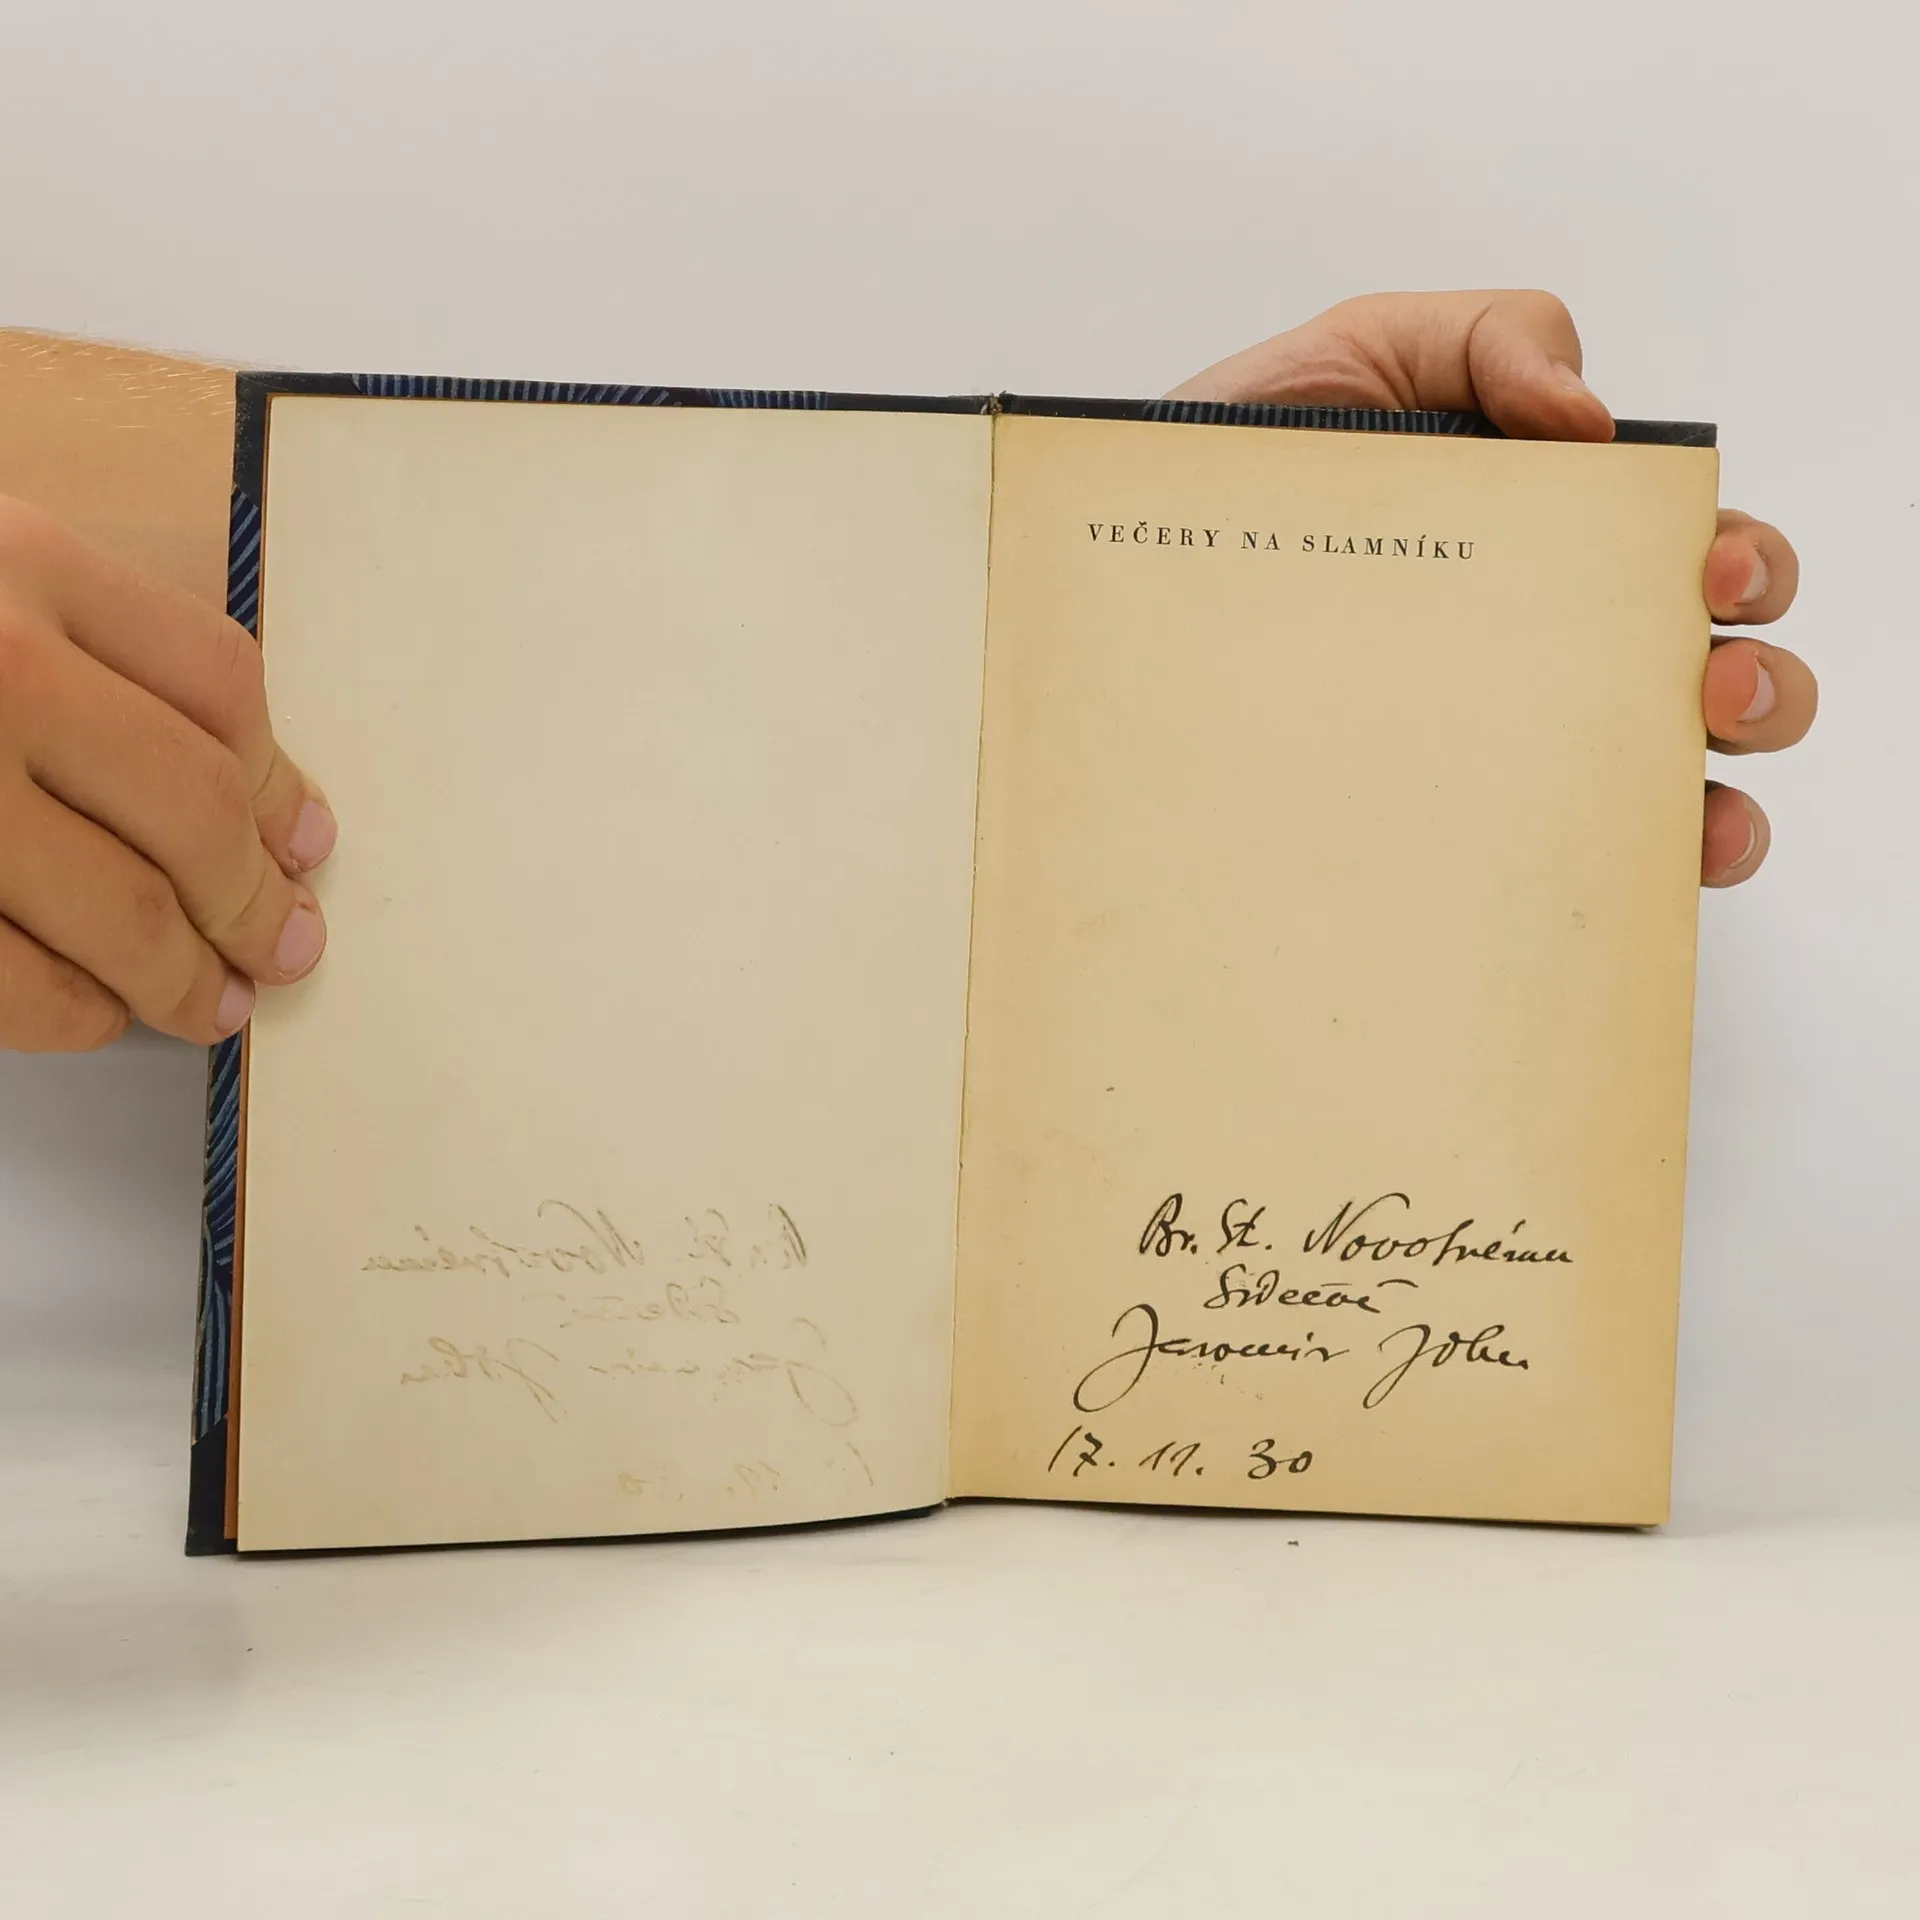 VEČERY NA SLAMNÍKU
Br. St. Novotnému
Srdečně
Jaromír John
17. 11. 30